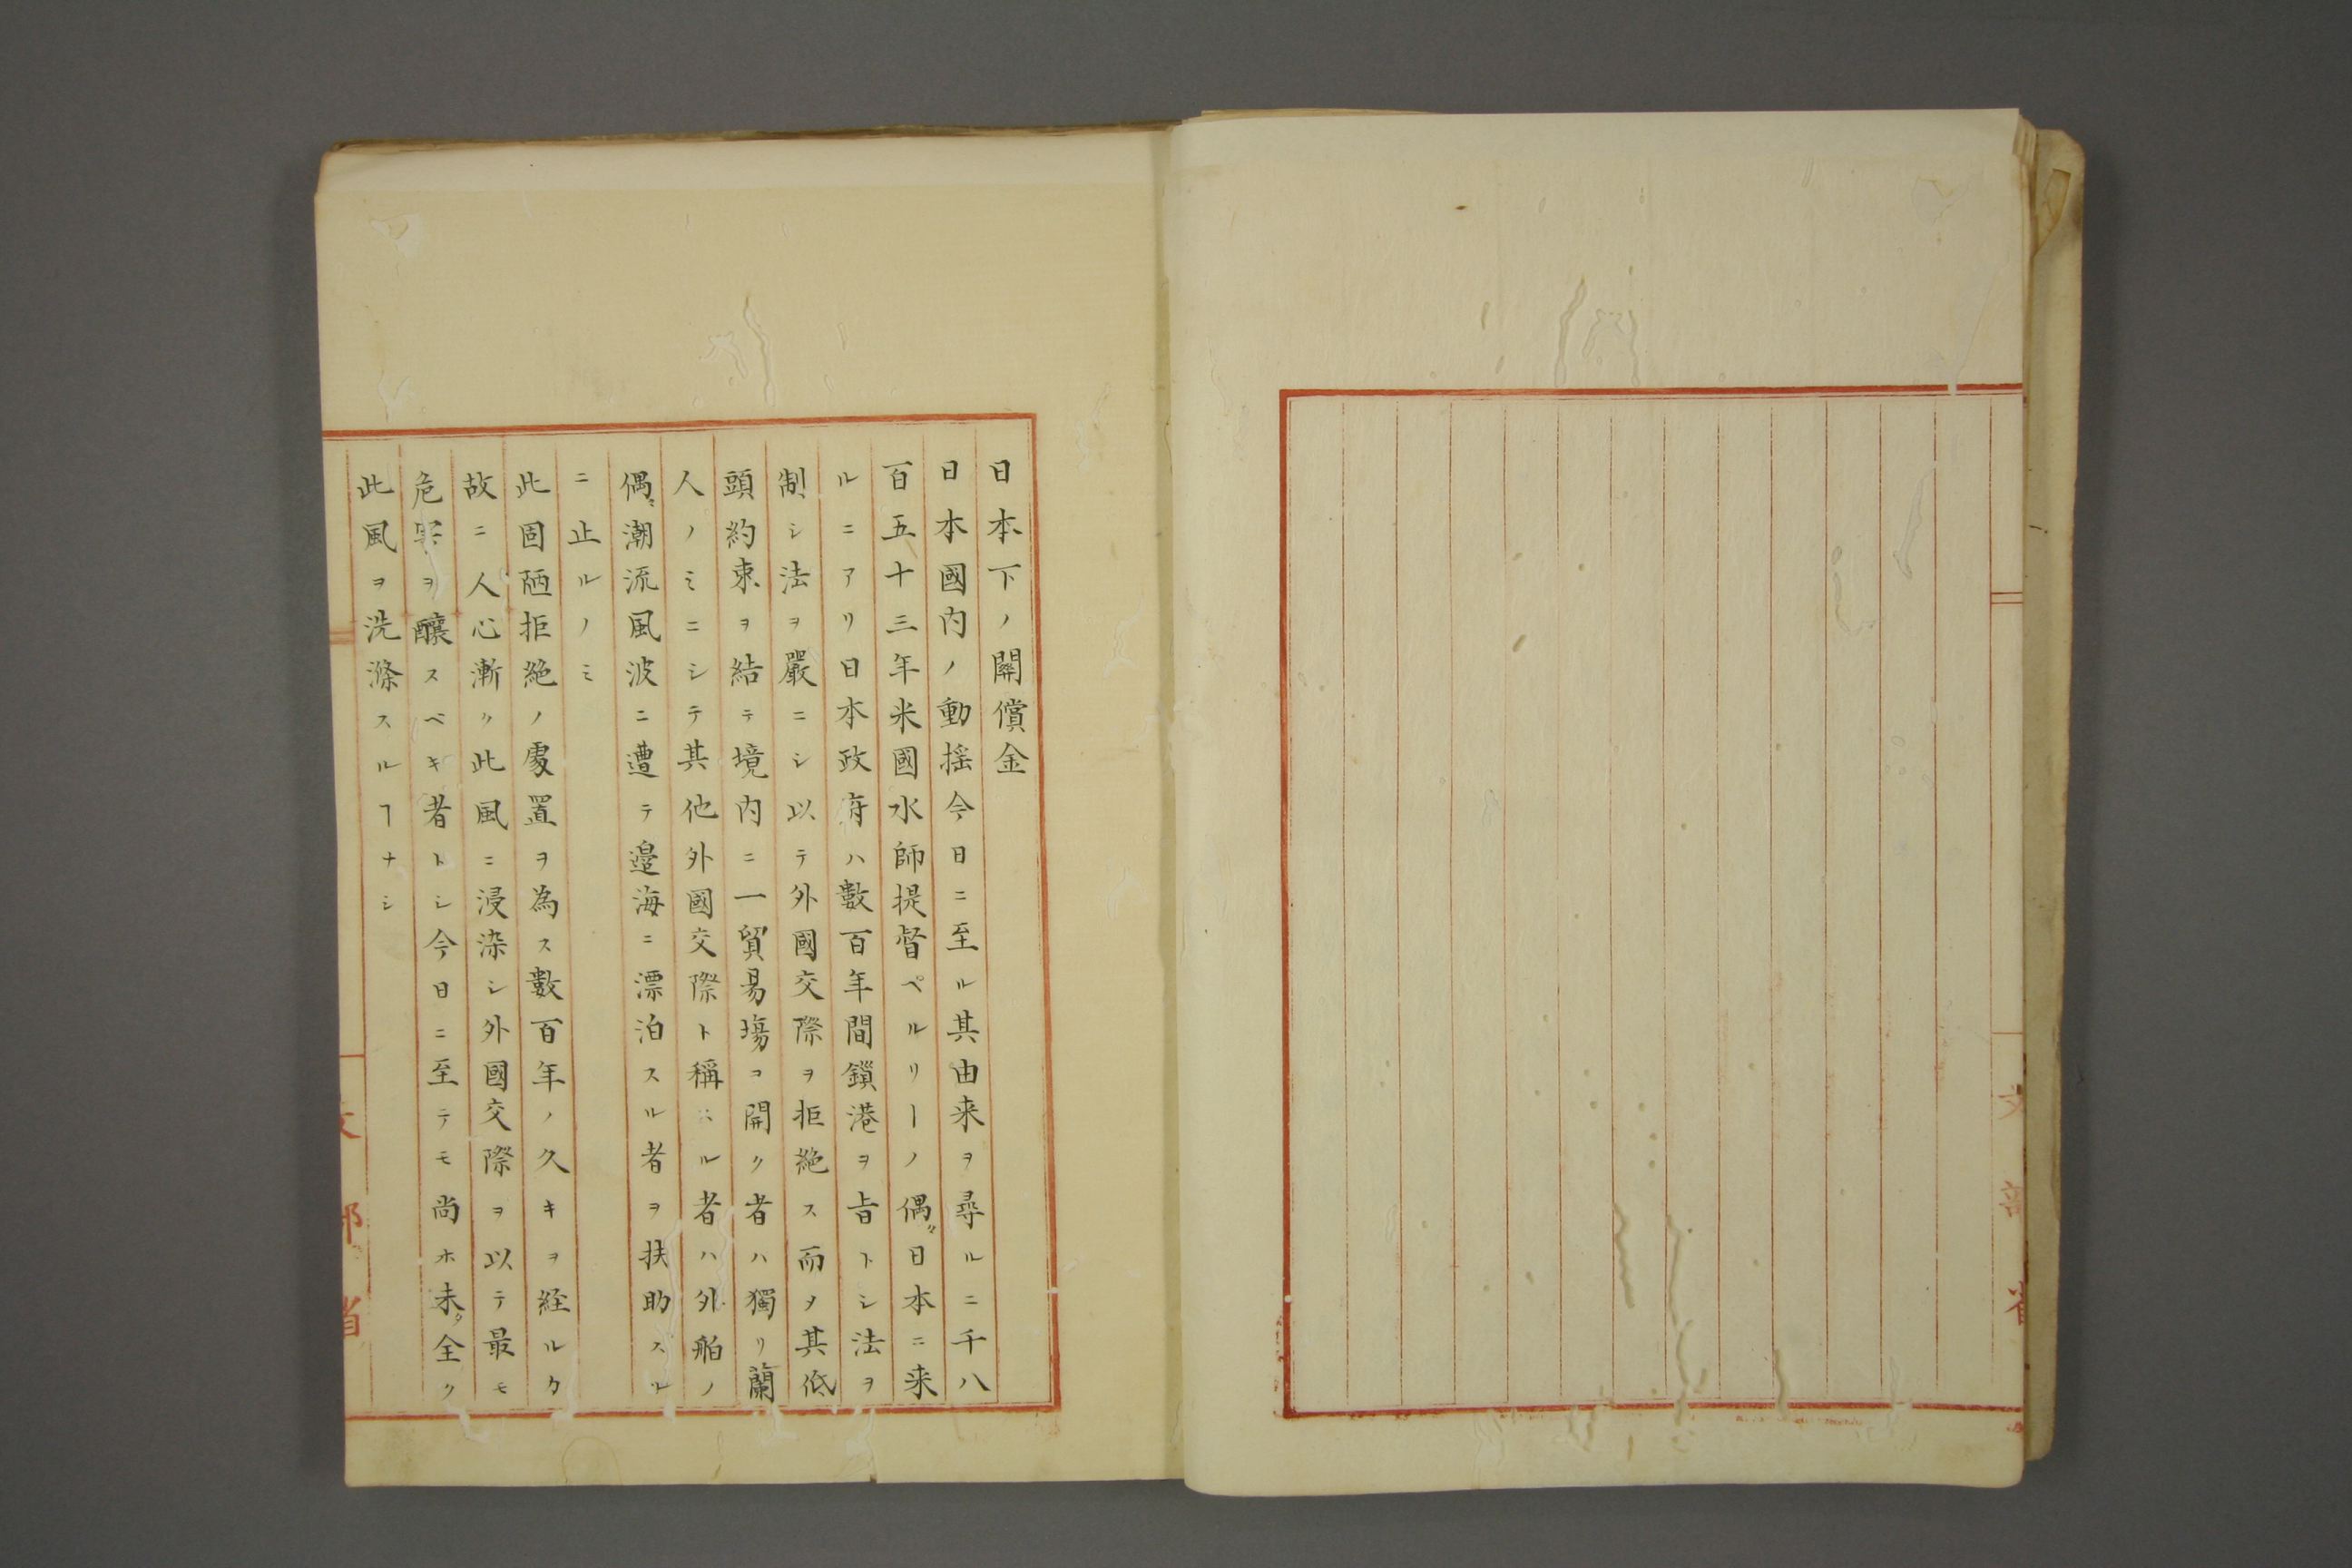 文部省
日本下ノ關償金
日本國内ノ動揺今日ニ至ル其由来ヲ尋ルニ千八
百五十三年米國水師提督ペルリーノ偶〻日本ニ来
ルニアリ日本政府ハ數百年間鎖港ヲ旨トシ法ヲ
制シ法ヲ嚴ニシ以テ外國交際ヲ拒絶ス而メ其低
頭約束ヲ結テ境内ニ一貿易塲ヲ開ク者ハ獨リ蘭
人ノミニシテ其他外國交際ト稱スル者ハ外舶ノ
偶〻潮流風波ニ遭テ邉海ニ漂泊スル者ヲ扶助スル
ニ止ルノミ
此固陋拒絶ノ處置ヲ為ス數百年ノ久キヲ経ルカ
故ニ人心漸ク此風ニ浸染シ外國交際ヲ以テ最モ
危害ヲ醸スベキ者トシ今日ニ至テモ尚ホ未タ全ク
此風ヲ洗滌スルヿナシ
文部省